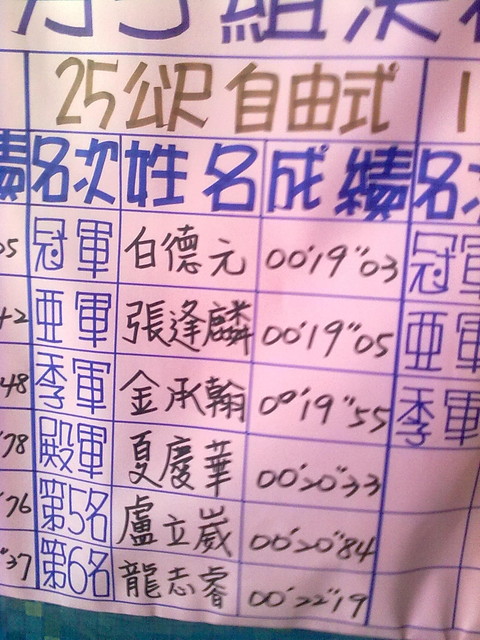 男子組決
25公尺自由式 1
績 名次 姓名 成績 名次
05 冠軍 白德元 00'19"03 冠軍
42 亞軍 張逢麟 00'19"05 亞軍
48 季軍 金承翰 00'19"55 季軍
'78 殿軍 夏慶華 00'20"33
'76 第5名 盧立崴 00'20"84
"37 第6名 龍志睿 00'22"19